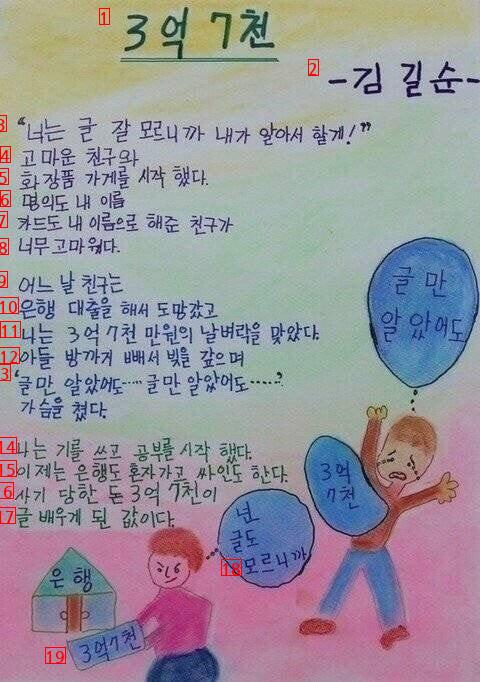 1 3억 7천
2 -김 길순-
3 "너는 글 잘 모르니까 내가 알아서 할게!"
4 고마운 친구와
5 화장품 가게를 시작 했다.
6 명의도 내 이름
7 카드도 내 이름으로 해준 친구가
8 너무 고마웠다.
9 어느 날 친구는
10 은행 대출을 해서 도망갔고
11 나는 3억 7천 만원의 날벼락을 맞았다.
12 아들 방까지 빼서 빚을 갚으며
3 '글만 알았어도..... 글만 알았어도......'
가슴을 쳤다.
14 나는 기를 쓰고 공부를 시작 했다.
15 이제는 은행도 혼자가고 싸인도 한다.
16 사기 당한 돈 3억 7천이
17 글 배우게 된 값이다.
글만
알았어도
3억
7천
넌
글도
18 모르니까
은행
19 3억 7천